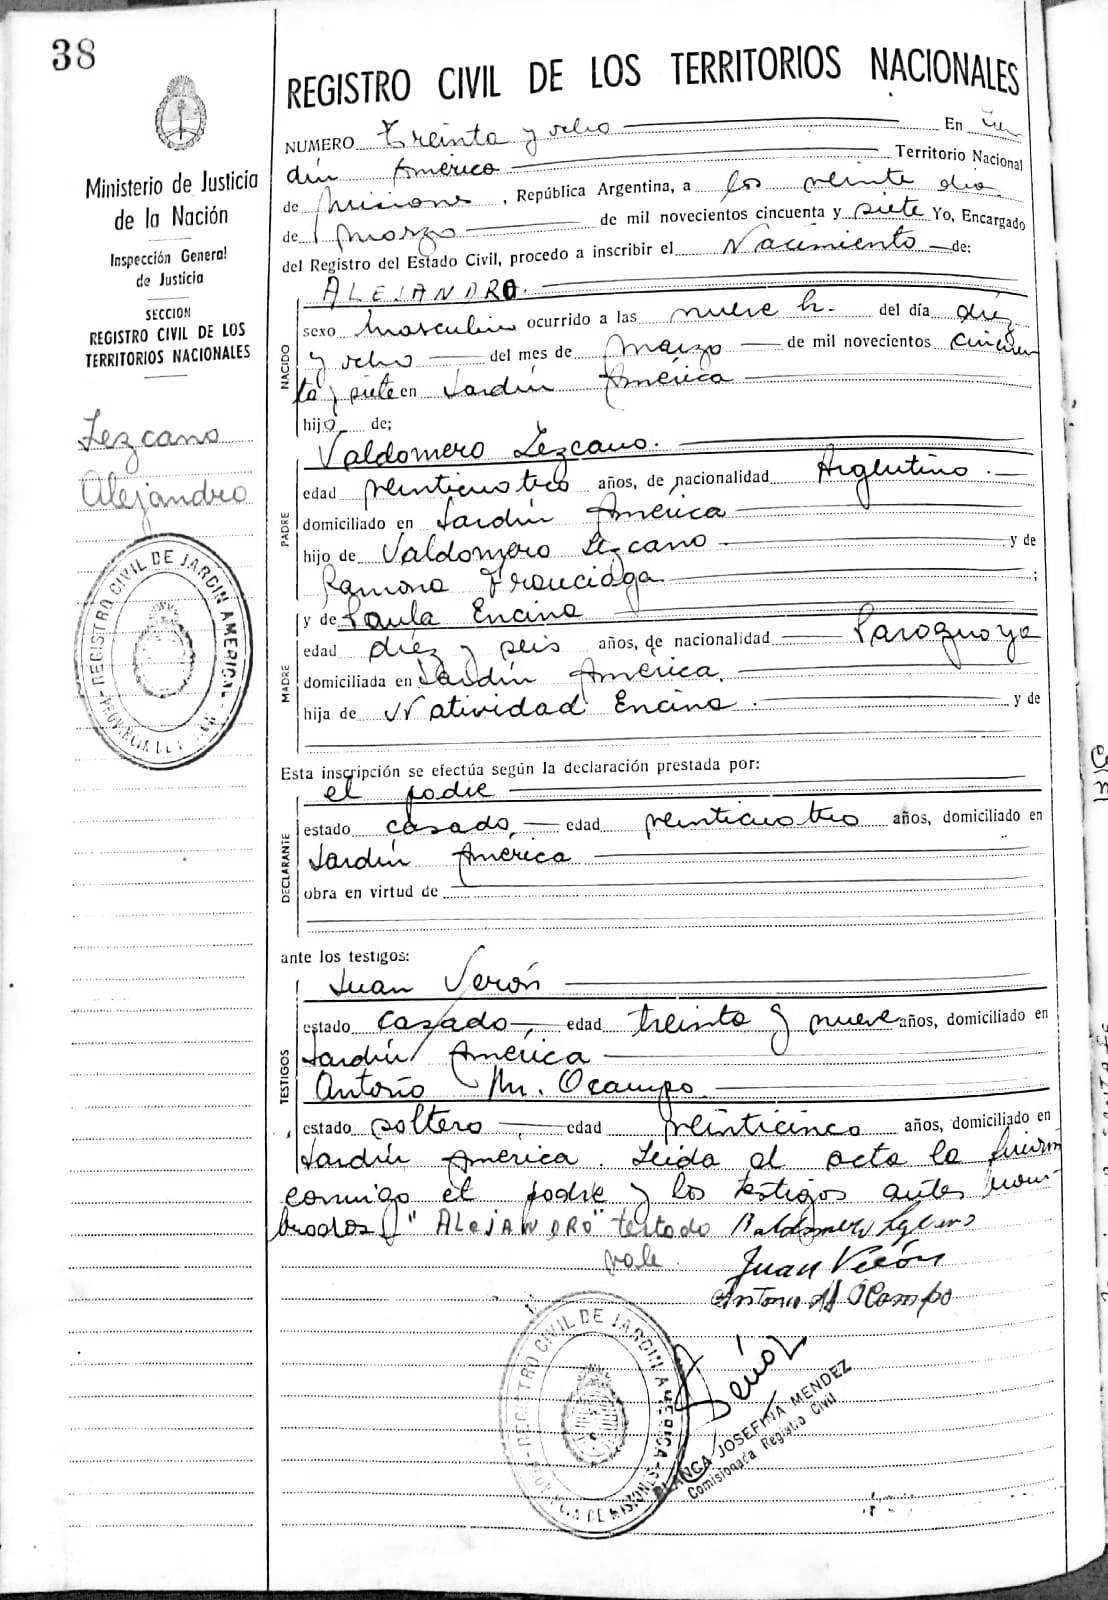 38
REGISTRO CIVIL DE LOS TERRITORIOS NACIONALES
Ministerio de Justicia
de la Nación
Inspección General
de Justicia
SECCION
REGISTRO CIVIL DE LOS
TERRITORIOS NACIONALES
Lezcano
Alejandro
REGISTRO CIVIL DE JARDIN AMERICA - PROVINCIA DE
NUMERO Treinta y ocho En Jar
dín América Territorio Nacional
de Misiones, República Argentina, a los veinte día
de marzo de mil novecientos cincuenta y siete Yo, Encargado
del Registro del Estado Civil, procedo a inscribir el Nacimiento de:
NACIDO
ALEJANDRO.
sexo masculino ocurrido a las nueve h. del día diéz
y ocho del mes de marzo de mil novecientos cincuen
ta y siete en Jardín América
hijo de;
PADRE
Valdomero Lezcano.
edad veinticuatro años, de nacionalidad Argentino.
domiciliado en Jardín América
hijo de Valdomero Lezcano y de
Ramona ;
MADRE
y de Paula Encina
edad diéz y seis años, de nacionalidad Paraguaya
domiciliada en Jardín América.
hija de Natividad Encina. y de
Esta inscripción se efectúa según la declaración prestada por:
DECLARANTE
el padre
estado casado, edad veinticuatro años, domiciliado en
Jardín América
obra en virtud de
ante los testigos:
TESTIGOS
Juan Verón
estado casado, edad treinta y nueve años, domiciliado en
Jardín América
Antonio M. Ocampo
estado soltero, edad veinticinco años, domiciliado en
Jardín América. Leida el acta la firman
conmigo el padre y los testigos antes nom
brados. "ALEJANDRO" testado
vale.
Juan Verón
Antonio M Ocampo
REGISTRO CIVIL DE JARDIN AMERICA - PROVINCIA DE MISIONES
BLANCA JOSEFINA MENDEZ
Comisionada Registro Civil